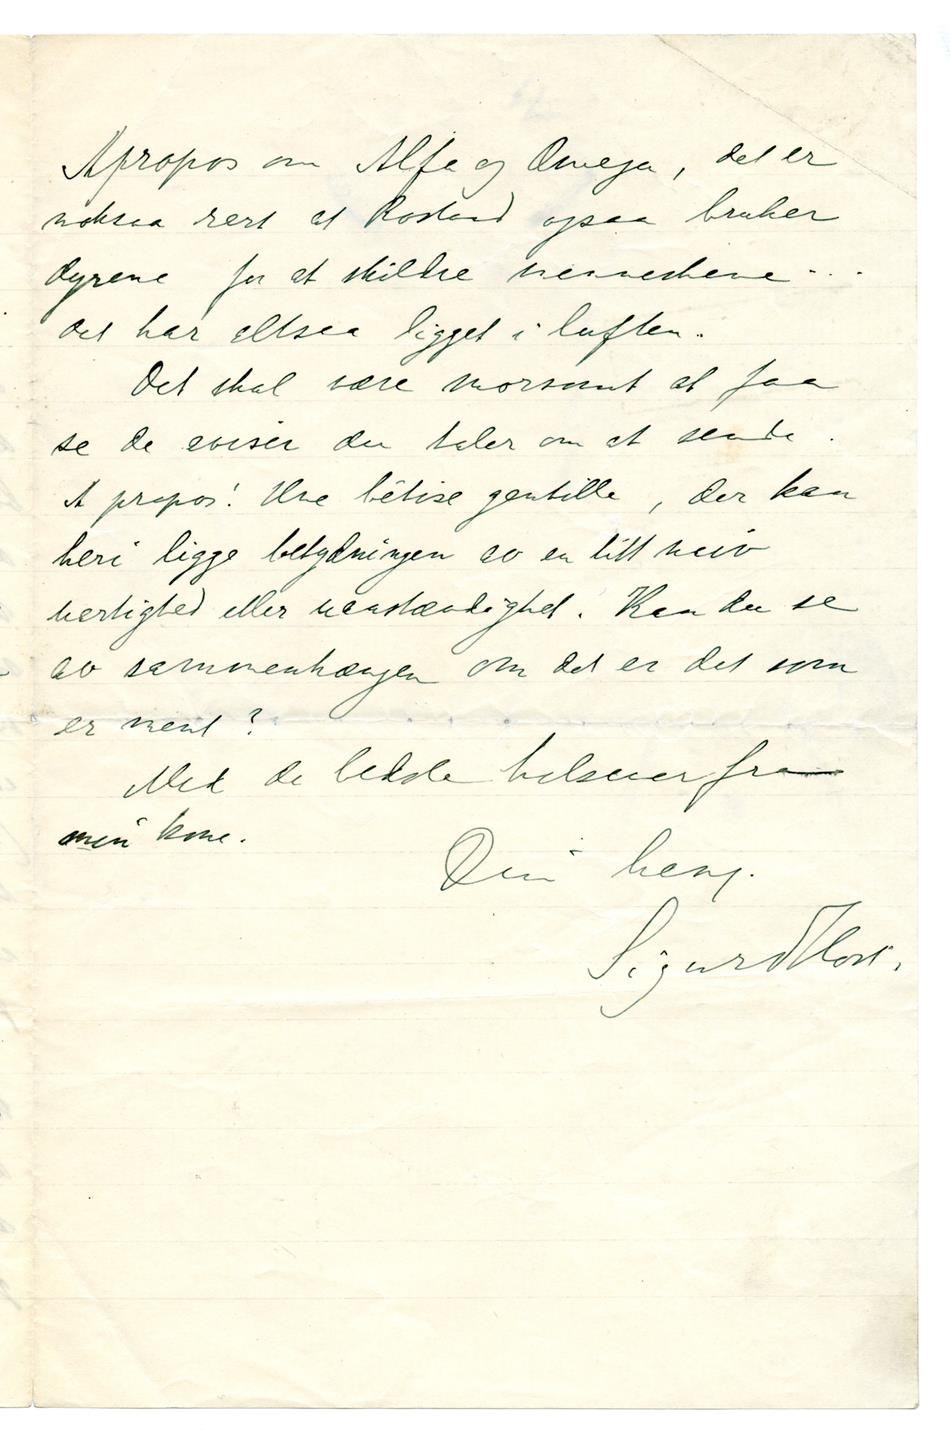 Apropos om Alfa og Omega, det er
noksaa rart at Rostand ogsaa bruker
dyrene for at skildre menneskene...
det har altsaa ligget i luften.
Det skal være morsomt at faa
se de aviser du taler om at sende.
A propos! Une bêtise gentille, der kan
heri ligge betydningen av en litt naiv
uanstændighet. Kan du se
av sammenhængen om det er det som
er ment?
Med de bedste hilsener fra
min kone.
Din heng.
Sigurd Høst.